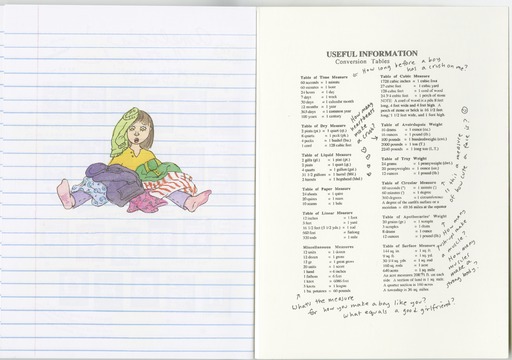 USEFUL INFORMATION
Conversion Tables
or How long before a boy
has a crush on me?
Table of Time Measure
60 seconds = 1 minute
60 minutes = 1 hour
24 hours = 1 day
7 days = 1 week
30 days = 1 calendar month
12 months = 1 year
365 days = 1 common year
100 years = 1 century
Table of Dry Measure
2 pints (pt.) = 1 quart (qt.)
8 quarts = 1 peck (pk.)
4 pecks = 1 bushel (bu.)
1 cord = 128 cubic feet
Table of Liquid Measure
4 gills (gi.) = 1 pint (pt.)
2 pints = 1 quart (qt.)
4 quarts = 1 gallon (gal.)
31 1/2 gallons = 1 barrel (bbl.)
2 barrels = 1 hogshead (hhd.)
Table of Paper Measure
24 sheets = 1 quire
20 quires = 1 ream
Table of Linear Measure
12 inches = 1 foot
3 feet = 1 yard
16 1/2 feet (5 1/2 yds.) = 1 rod
320 rods = 1 mile
Miscellaneous Measures
12 units = 1 dozen
12 dozen = 1 gross
12 gr. = 1 great gross
20 units = 1 score
1 hand = 4 inches
1 fathom = 6 feet
1 knot = 6080 feet
3 knots = 1 league
1 bu. potatoes = 60 pounds
How many
heartbeats
make
a crush?
Table of Cubic Measure
1728 cubic inches = 1 cubic foot
27 cubic feet = 1 cubic yard
128 cubic feet = 1 cord of wood
24 3/4 cubic feet = 1 perch of stone
NOTE: A cord of wood is a pile 8 feet
long, 4 feet wide and 4 feet high. A
perch of stone or brick is 16 1/2 feet
long, 1 1/2 feet wide, and 1 foot high.
Table of Avoirdupois Weight
16 drams = 1 ounce (oz.)
16 ounces = 1 pound (lb.)
100 pounds = 1 hundredweight (cwt.)
2000 pounds = 1 ton (T.)
2240 pounds = 1 long ton (L.T.)
Table of Troy Weight
24 grains = 1 pennyweight (dwt.)
20 pennyweights = 1 ounce (oz.)
12 ounces = 1 pound (lb.)
Table of Circular Measure
60 seconds (") = 1 minute (')
60 minutes = 1 degree
360 degrees = 1 circumference
A degree of the earth's surface on a
meridian = 69.16 miles at the equator
Table of Apothecaries' Weight
20 grains (gr.) = 1 scruple
3 scruples = 1 dram
8 drams = 1 ounce
12 ounces = 1 pound (lb.)
Table of Surface Measure
144 sq. in. = 1 sq. ft.
9 sq. ft. = 1 sq. yd.
30 1/4 sq. yds. = 1 sq. rod
160 sq. rods = 1 acre
640 acres = 1 sq. mile
Is this a measure
of how cute a
How many
push-ups make
a muscle?
How many
muscles
make a
strong body?
What's the measure
for how you make a boy like you?
What equals a good girlfriend?